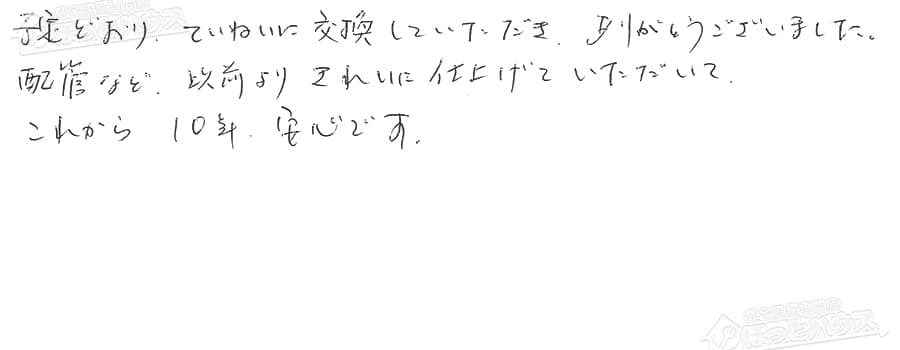 予定どおり、ていねいに交換していただき、ありがとうございました。
配管など、以前よりきれいに仕上げていただいて、
これから10年、安心です。